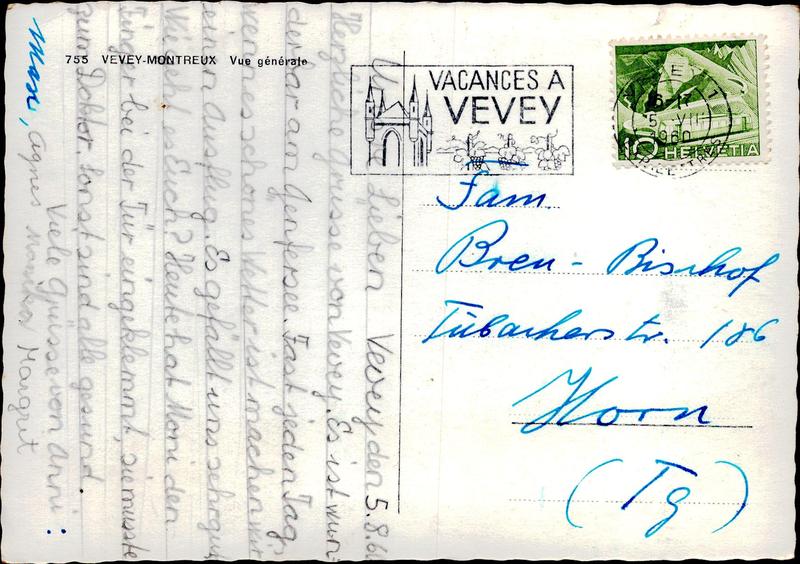 755 VEVEY-MONTREUX Vue générale
VACANCES A
VEVEY
VEVEY 1
1960
10 HELVETIA
Fam.
Breu - Bischof
Tübacherstr. 186
Horn
(Tg)
Lieben Vevey den 5.8.60
Herzliche Grüsse von Vevey. Es ist wun-
derbar am Genfersee. Fast jeden Tag,
wenn es schöns Wetter ist machen wir
einen Ausflug. Es gefällt uns sehr gut.
Wie geht es Euch? Heute hat Moni den
Finger bei der Tür eingeklemmt, sie musste
zum Doktor. Sonst sind alle gesund.
Viele Grüsse von Anni:
Max, Agnes Monika Margrit